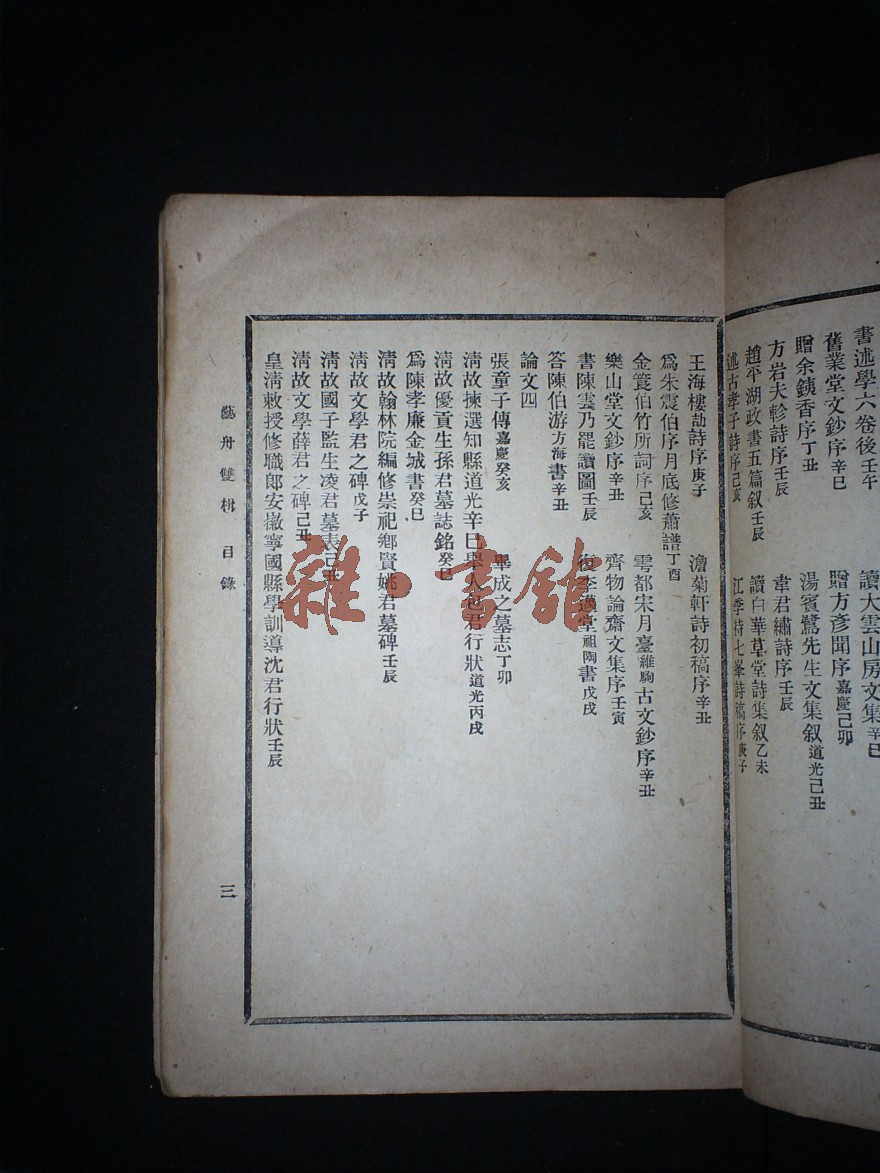 書述學六卷後壬午
讀大雲山房文集辛巳
舊業堂文鈔序辛巳
贈方彥聞序嘉慶己卯
贈余銕香序丁丑
湯賓鷺先生文集叙道光己丑
方岩夫軫詩序壬辰
韋君繡詩序壬辰
趙平湖政書五篇叙壬辰
讀白華草堂詩集叙乙未
述古孝子詩序己亥
江季持七峯詩稿序庚子
王海樓劼詩序庚子
澹菊軒詩初稿序辛丑
爲朱震伯序月底修蕭譜丁酉
金筤伯竹所詞序己亥
雩都宋月臺維駒古文鈔序辛丑
樂山堂文鈔序辛丑
齊物論齋文集序壬寅
書陳雲乃罷讀圖壬辰
復李邁堂祖陶書戊戌
答陳伯游方海書辛丑
論文四
張童子傳嘉慶癸亥
畢成之墓志丁卯
清故揀選知縣道光辛巳舉人包君行狀道光丙戌
清故優貢生孫君墓誌銘癸巳
爲陳孝廉金城書癸巳
清故翰林院編修崇祀鄉賢姚君墓碑壬辰
清故文學君之碑戊子
清故國子監生凌君墓表己丑
清故文學薛君之碑己丑
皇清敕授修職郎安徽寧國縣學訓導沈君行狀壬辰
藝舟雙楫 目錄
三
雜·書館